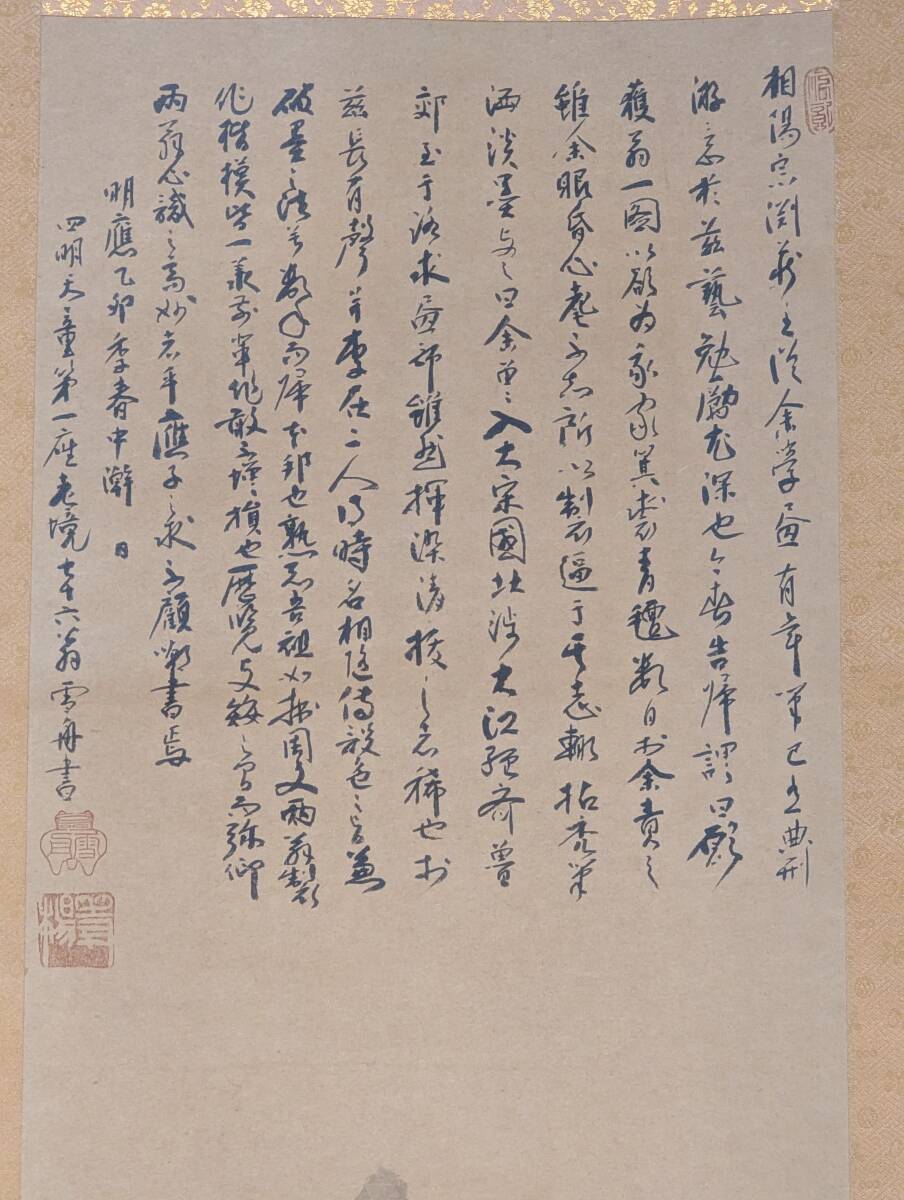 相陽宗淵蔵主從余學畫有年筆已有典刑
游意於茲藝勉勵尤深也今春告歸謂曰願
獲翁一圖以欲為我家箕裘青氈数日于余責之
雖余眼昏心耄不知所以製逼于其志輙拈禿筆
洒淡墨与之曰余曽〻入大宋國北渉大江経齊魯
郊至于洛求畫師雖然揮染清抜之者稀也於
茲長有聲并李在二人得時名相随傳設色之旨兼
破墨之法兮数年而帰本邦也熟知吾祖如拙周文兩翁製
作楷模皆一承前輩作敢不増損也歴覧支倭之間而弥仰
兩翁心識之高妙者乎應子之求不顧嘲書焉
明應乙卯季春中澣日
四明天童第一座老境七十六翁雪舟書
等楊